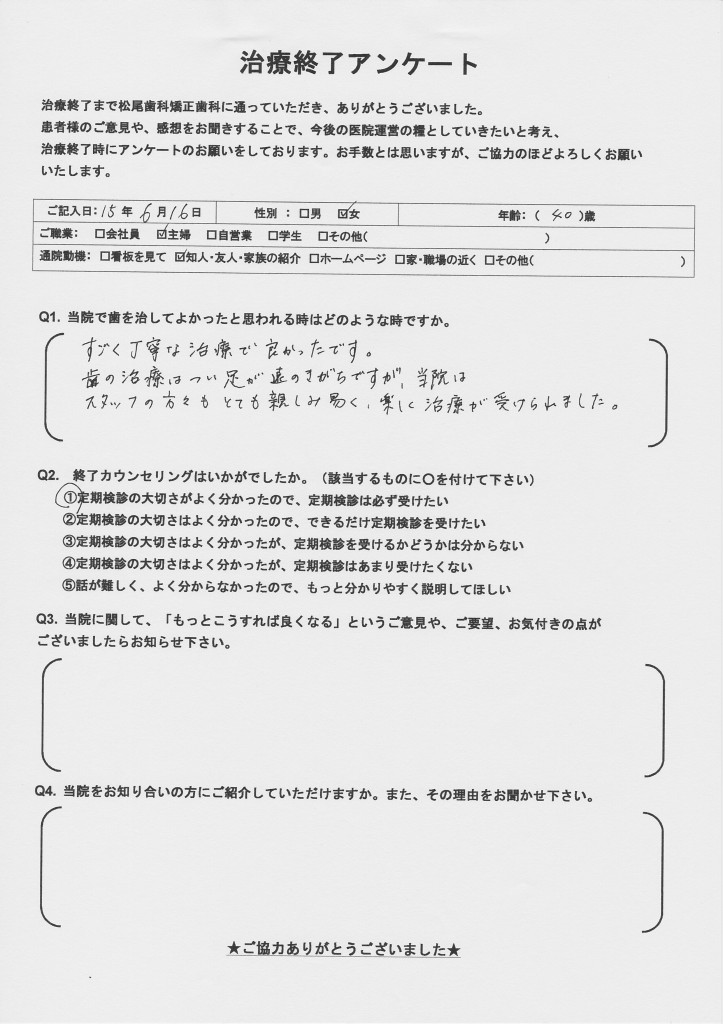 治療終了アンケート
治療終了まで松尾歯科矯正歯科に通っていただき、ありがとうございました。
患者様のご意見や、感想をお聞きすることで、今後の医院運営の糧としていきたいと考え、
治療終了時にアンケートのお願いをしております。お手数とは思いますが、ご協力のほどよろしくお願い
いたします。
ご記入日：15年 6月16日 性別 ： □男 ☑女 年齢：（ 40 ）歳
ご職業： □会社員 ☑主婦 □自営業 □学生 □その他（ ）
通院動機： □看板を見て ☑知人・友人・家族の紹介 □ホームページ □家・職場の近く □その他（ ）
Q1. 当院で歯を治してよかったと思われる時はどのような時ですか。
すごく丁寧な治療で良かったです。
歯の治療はつい足が遠のきがちですが、当院は
スタッフの方々もとても親しみ易く、楽しく治療が受けられました。
Q2. 終了カウンセリングはいかがでしたか。（該当するものに〇を付けて下さい）
①定期検診の大切さがよく分かったので、定期検診は必ず受けたい
②定期検診の大切さはよく分かったので、できるだけ定期検診を受けたい
③定期検診の大切さはよく分かったが、定期検診を受けるかどうかは分からない
④定期検診の大切さはよく分かったが、定期検診はあまり受けたくない
⑤話が難しく、よく分からなかったので、もっと分かりやすく説明してほしい
Q3. 当院に関して、「もっとこうすれば良くなる」というご意見や、ご要望、お気付きの点が
ございましたらお知らせ下さい。
Q4. 当院をお知り合いの方にご紹介していただけますか。また、その理由をお聞かせ下さい。
★ご協力ありがとうございました★